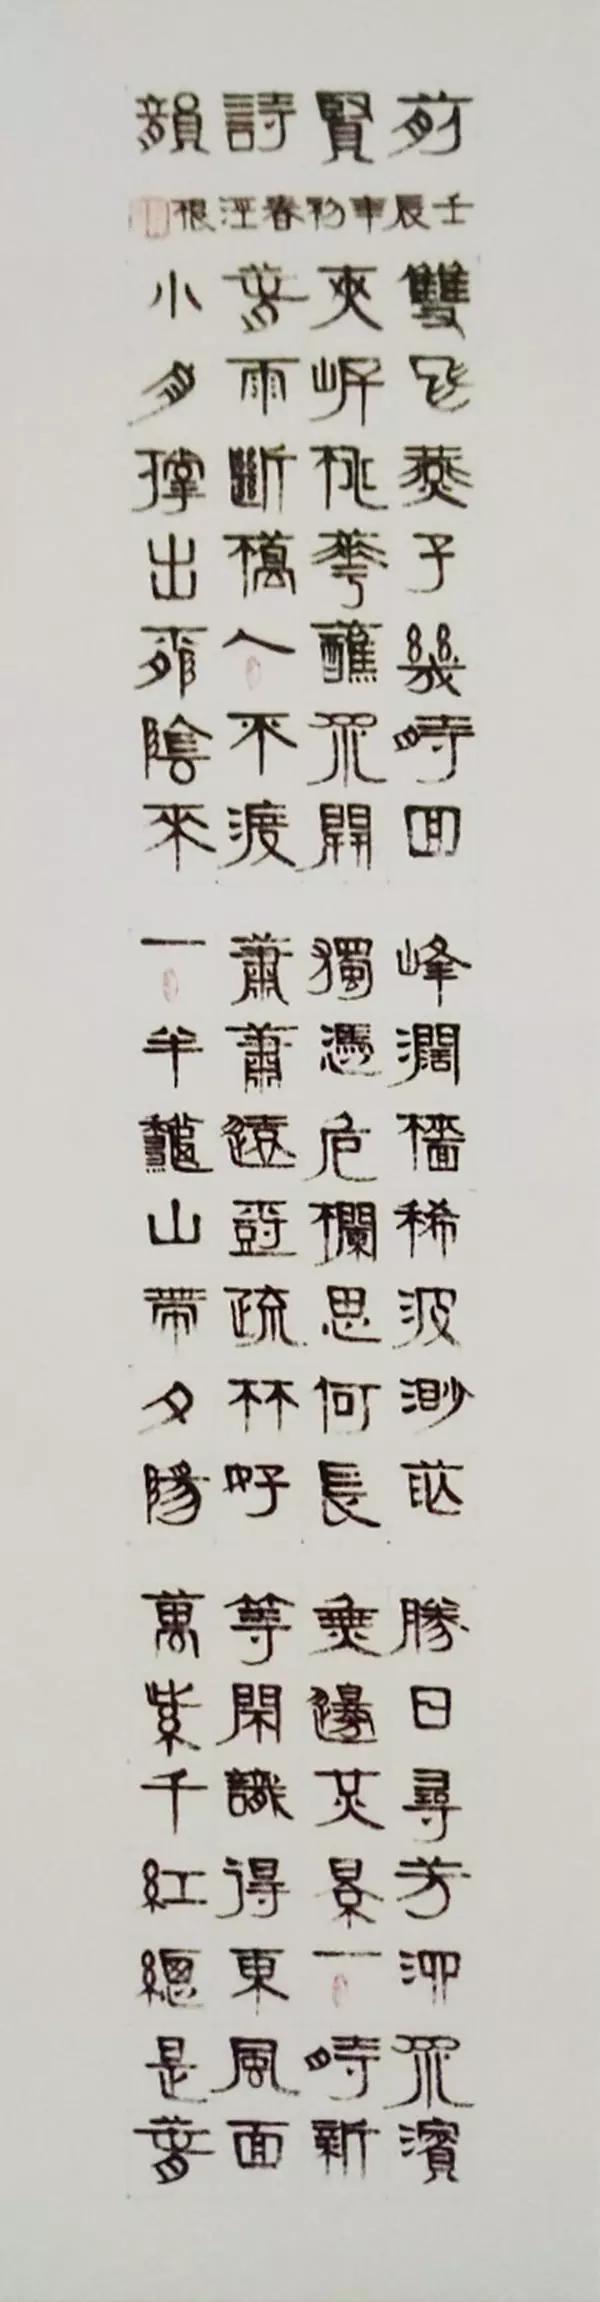 前賢詩韻
壬辰年初春汪根
雙飛燕子幾時回
夾岸桃花蘸水開
春雨斷橋人不渡
小舟撐出柳陰來
峰濶檣稀波渺茫
獨憑危欄思何長
蕭蕭遠尌疏林外
一半龝山帶夕陽
勝日尋芳泗水濱
無邊光景一時新
等閑識得東風面
萬紫千紅總是春